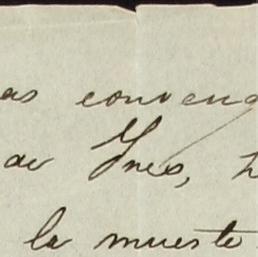 as conveng
de Ynes,
la muerte